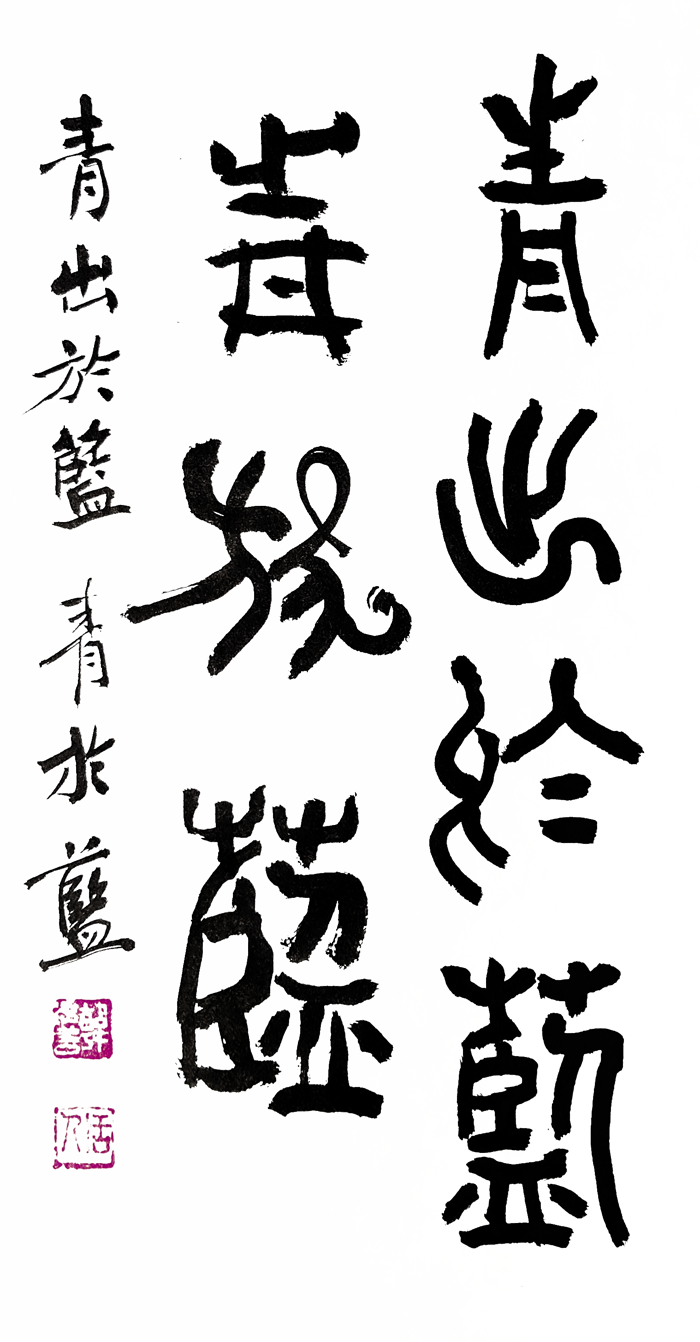 青出於藍
青於藍
青出於籃青於藍